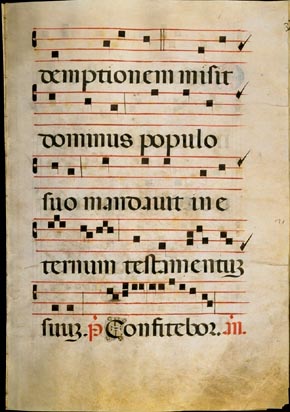 demptionem misit
dominus populo
suo mandavit in e
ternum testamentuʒ
suuʒ. p̄ Confitebor. añ.